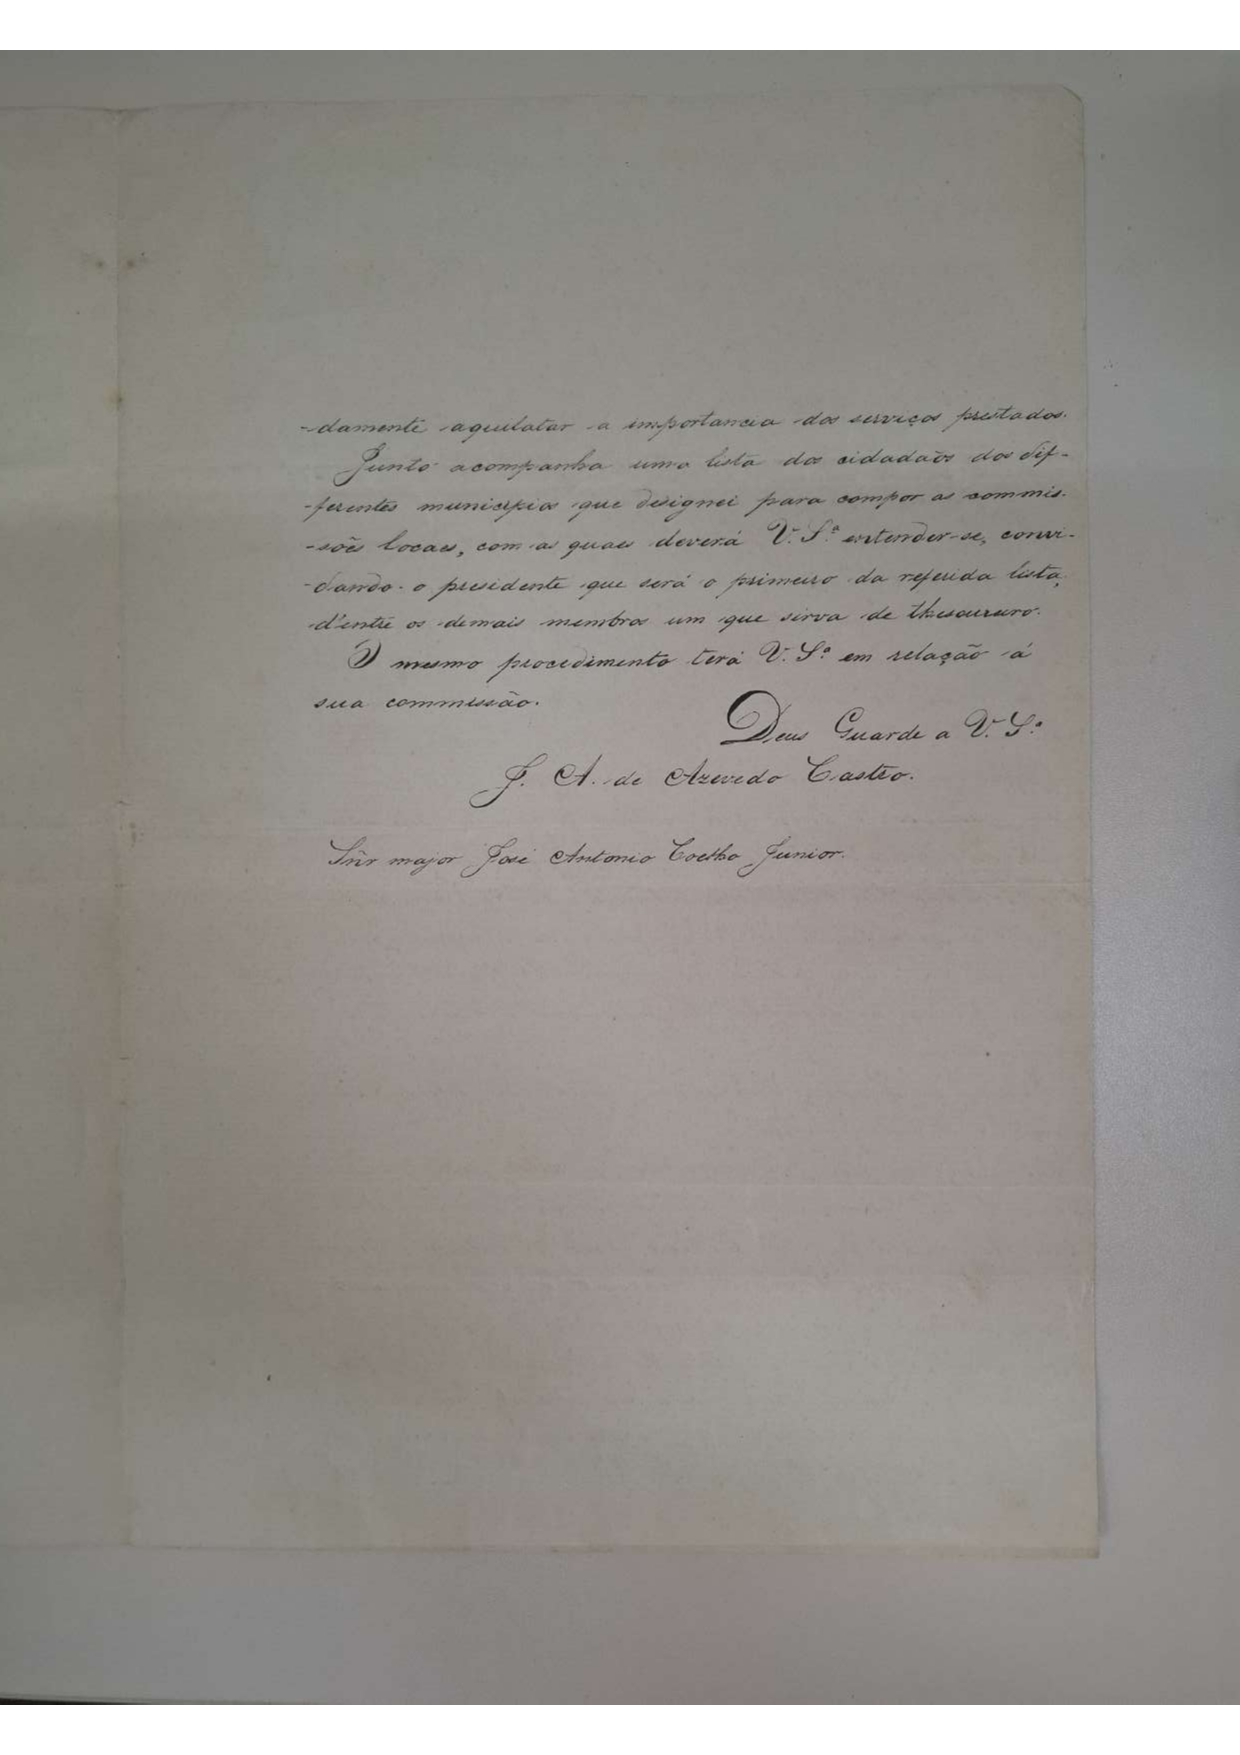 -damente aquilatar a importancia dos serviços prestados.
Junto acompanha uma lista dos cidadãos dos dif-
-ferentes municipios que designei para compor as commis-
-sões locaes, com as quaes deverá V. S.ª entender-se, convi-
-dando o presidente que será o primeiro da referida lista,
d'entre os demais membros um que sirva de thesoureiro.
O mesmo procedimento terá V. S.ª em relação á
sua commissão.
Deus Guarde a V. S.ª
J. A. de Azevedo Castro.
Sñr major José Antonio Coelho Junior.